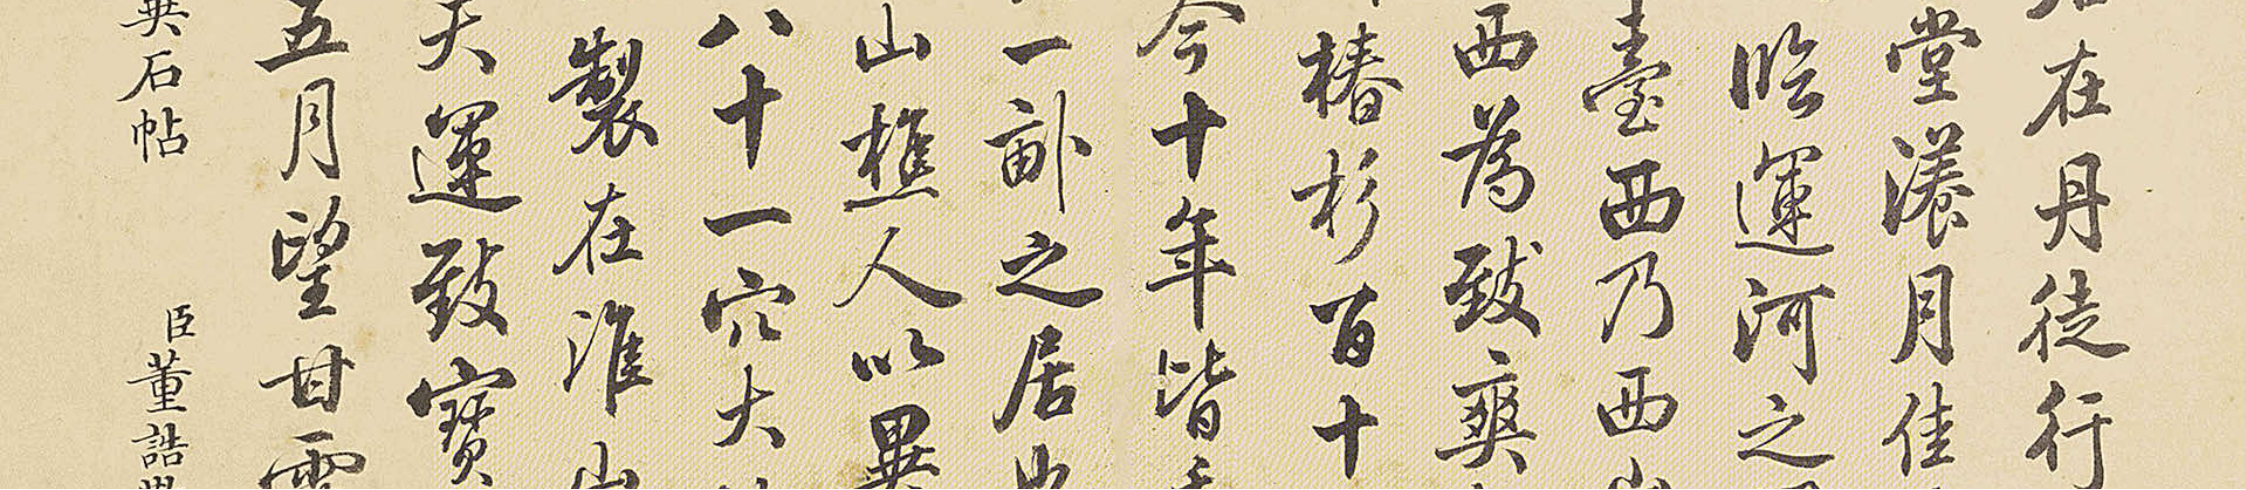 在丹徒行
堂漾月佳
臨運河之
臺西乃西山
西為致爽
椿杉百十
今十年皆
一畝之居
山樵人以異
八十一穴大
製在淮山
天運致寶
五月望甘露
英石帖
臣董誥